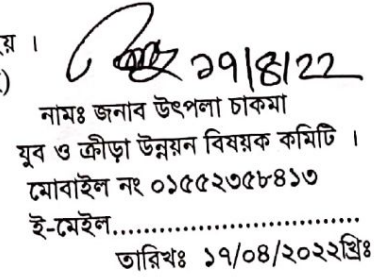 য় ।
১৭/৪/২২
)
নামঃ জনাব উৎপলা চাকমা
যুব ও ক্রীড়া উন্নয়ন বিষয়ক কমিটি ।
মোবাইল নং ০১৫৫২৩৫৮৪১৩
ই-মেইল.................................
তারিখঃ ১৭/০৪/২০২২খ্রিঃ